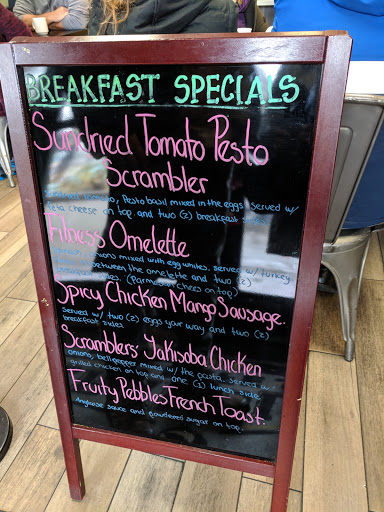 BREAKFAST SPECIALS
Sundried Tomato Pesto
Scrambler
Tomato, Pesto basil mixed in the eggs served w/
feta cheese on top and two (2) breakfast sides
Fitness Omelette
onions mixed with egg whites. served w/ turkey
between the omelette and two (2)
(Parmesan chees on top)
Spicy Chicken Mango Sausage.
served w/ two (2) eggs your way and two (2)
breakfast sides
Scramblers Yakisoba Chicken
onions, bell pepper mixed w/ the pasta. served w/
grilled chicken on top and one (1) lunch side
Fruity Pebbles French Toast.
Anglaise sauce and powdered sugar on top.